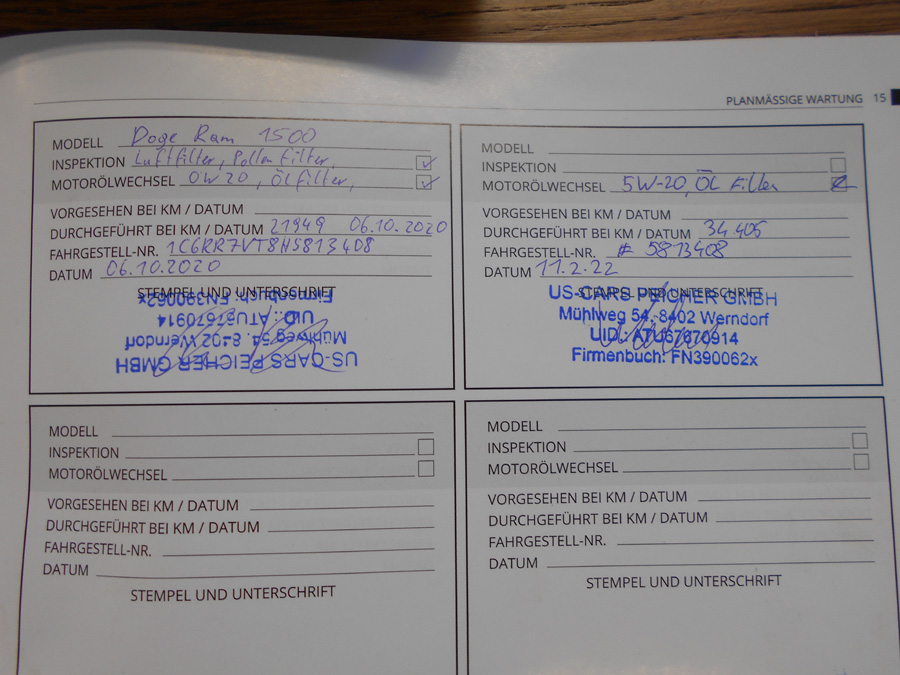 PLANMÄSSIGE WARTUNG 15
MODELL Doge Ram 1500
INSPEKTION Luftfilter, Pollenfilter,
MOTORÖLWECHSEL 0W20, Ölfilter,
VORGESEHEN BEI KM / DATUM
DURCHGEFÜHRT BEI KM / DATUM 21949 06.10.2020
FAHRGESTELL-NR. 1C6RR7VT8HS813408
DATUM 06.10.2020
STEMPEL UND UNTERSCHRIFT
US-CARS PEICHER GMBH
Mühlweg 54, 8402 Werndorf
UID.: ATU67670914
Firmenbuch: FN390062x
MODELL
INSPEKTION
MOTORÖLWECHSEL 5W-20, ÖL Filter
VORGESEHEN BEI KM / DATUM
DURCHGEFÜHRT BEI KM / DATUM 34.405
FAHRGESTELL-NR. # 5813408
DATUM 11.2.22
STEMPEL UND UNTERSCHRIFT
US-CARS PEICHER GMBH
Mühlweg 54, 8402 Werndorf
UID.: ATU67670914
Firmenbuch: FN390062x
MODELL
INSPEKTION
MOTORÖLWECHSEL
VORGESEHEN BEI KM / DATUM
DURCHGEFÜHRT BEI KM / DATUM
FAHRGESTELL-NR.
DATUM
STEMPEL UND UNTERSCHRIFT
MODELL
INSPEKTION
MOTORÖLWECHSEL
VORGESEHEN BEI KM / DATUM
DURCHGEFÜHRT BEI KM / DATUM
FAHRGESTELL-NR.
DATUM
STEMPEL UND UNTERSCHRIFT